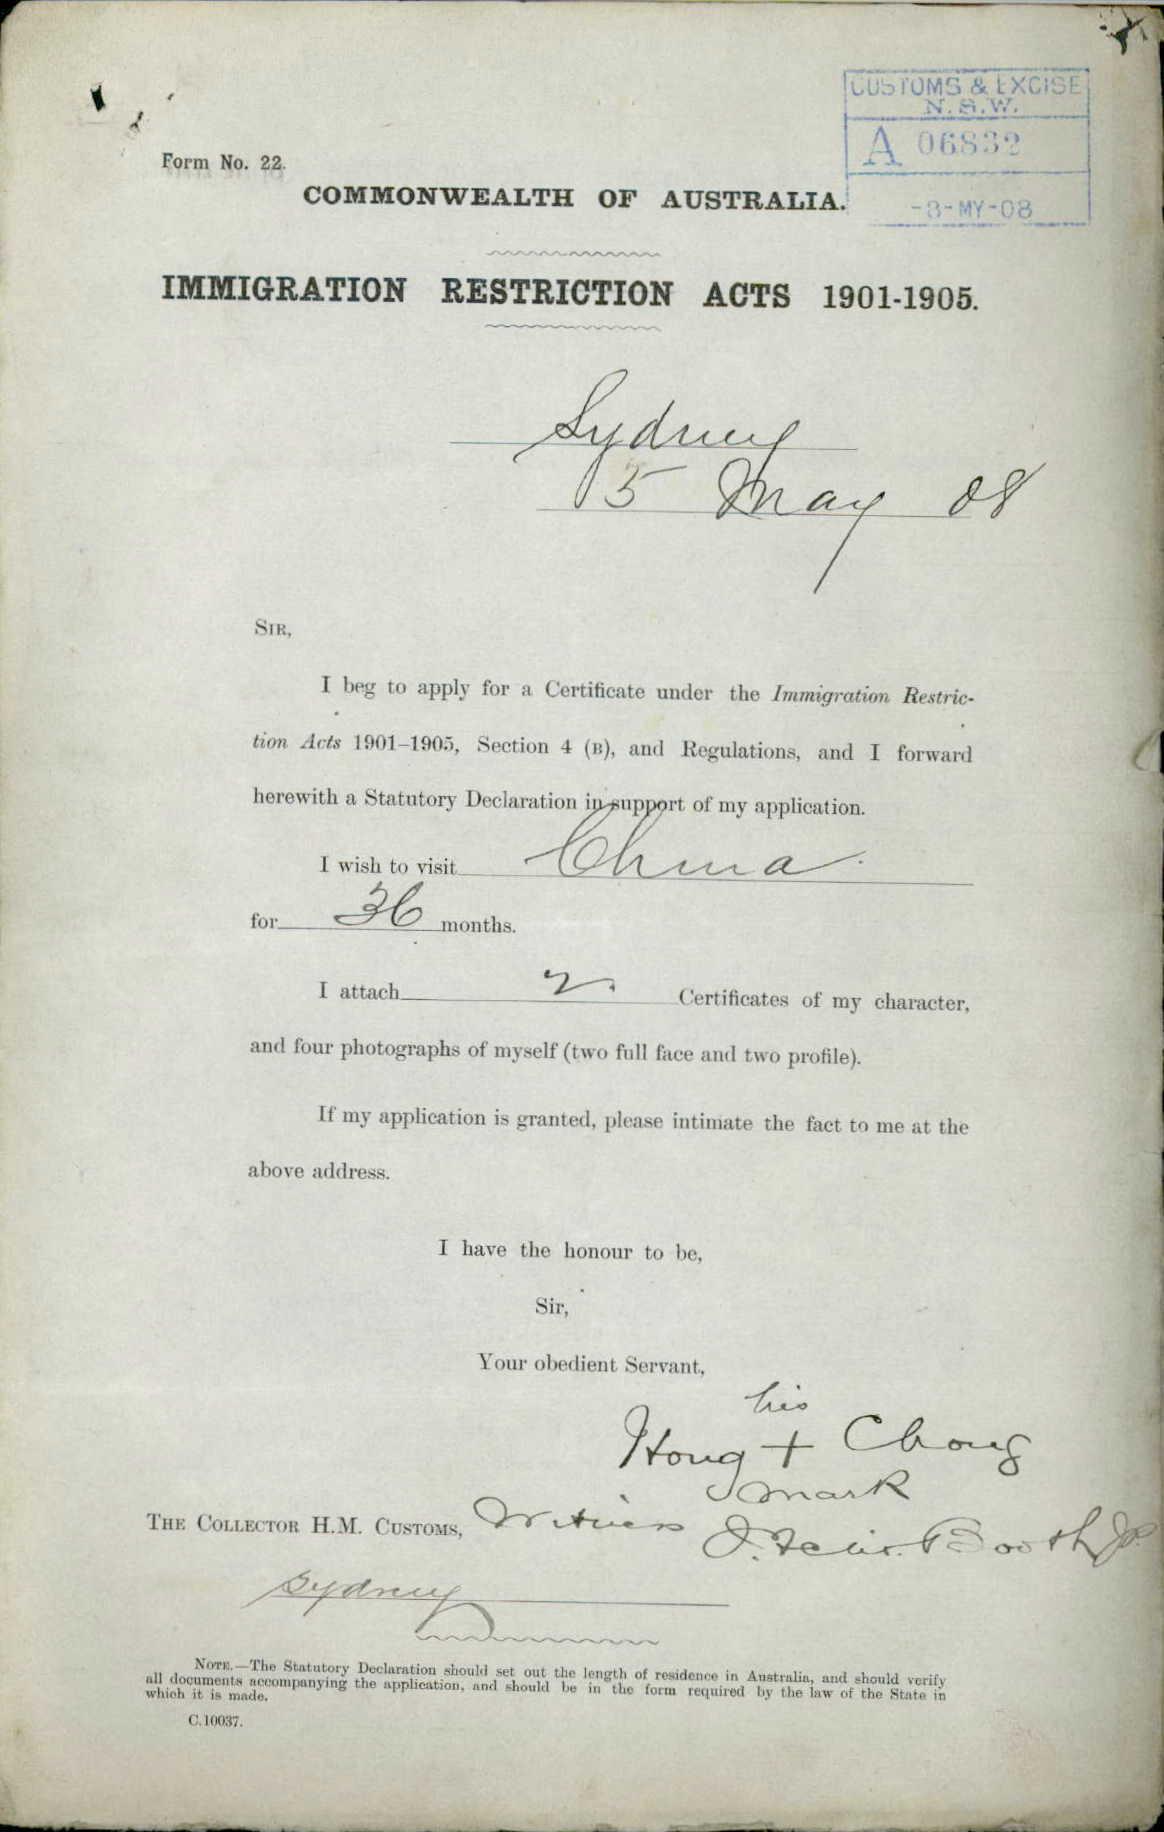 CUSTOMS & EXCISE
N.S.W.
A 06832
-8-MY-08
Form No. 22.
COMMONWEALTH OF AUSTRALIA.
IMMIGRATION RESTRICTION ACTS 1901-1905.
Sydney
5 May 08
SIR,
I beg to apply for a Certificate under the Immigration Restric-
tion Acts 1901–1905, Section 4 (B), and Regulations, and I forward
herewith a Statutory Declaration in support of my application.
I wish to visit China
for 36 months.
I attach 2 Certificates of my character,
and four photographs of myself (two full face and two profile).
If my application is granted, please intimate the fact to me at the
above address.
I have the honour to be,
Sir,
Your obedient Servant,
his
Hong + Chong
mark
THE COLLECTOR H.M. CUSTOMS, Witness Booth JP
Sydney
NOTE.—The Statutory Declaration should set out the length of residence in Australia, and should verify
all documents accompanying the application, and should be in the form required by the law of the State in
which it is made.
C.10037.